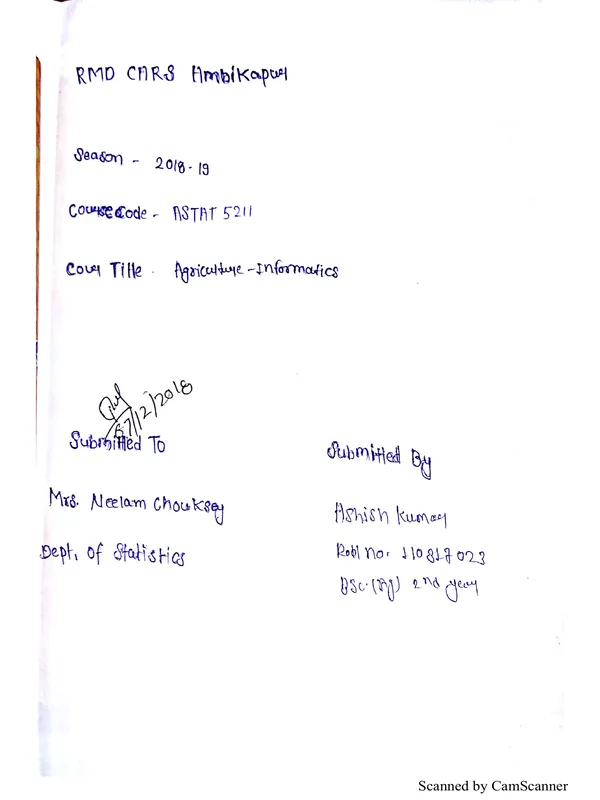 RMD CARS Ambikapur
Season - 2018-19
Course Code - ASTAT 5211
Cour Title . Agriculture - Informatics
07/12/2018
Submitted To
Submitted By
Mrs. Neelam Chouksey
Ashish Kumar
Dept. of Statistics
Roll no. 110817023
BSc. (Ag) 2nd year
Scanned by CamScanner